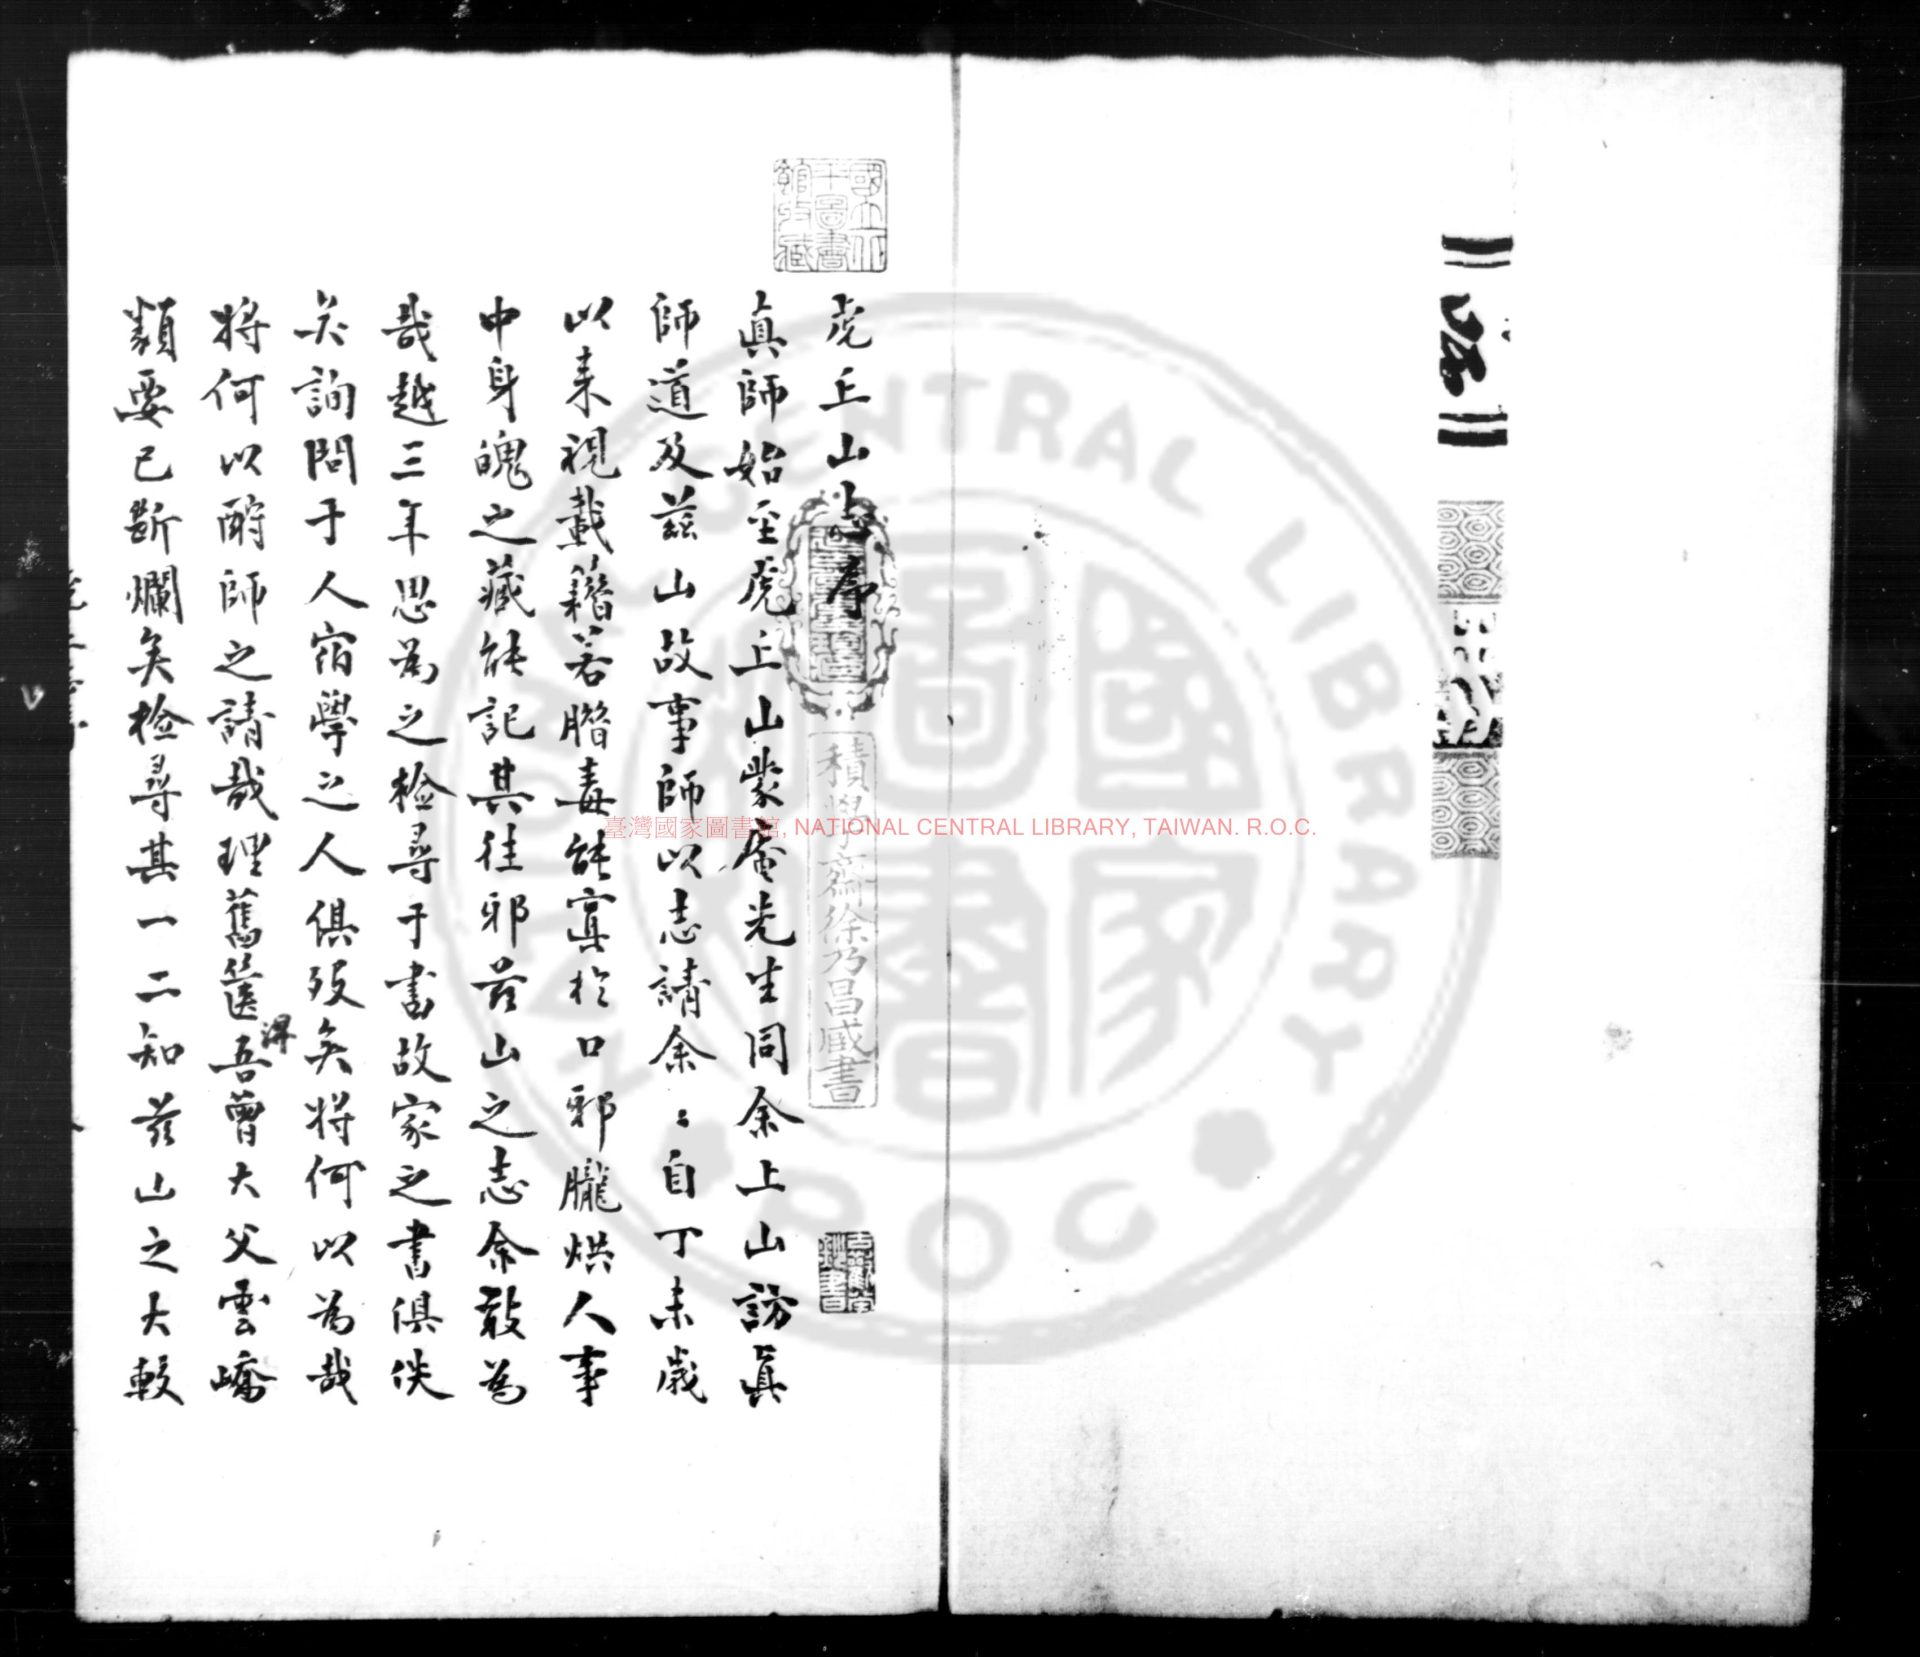 虎丘山志序
眞師始至虎丘山蒙庵先生同余上山訪眞
師道及茲山故事師以志請余〻自丁未歲
以来視載籍若腊毒能寘於口邪朧烘人事
中身魄之藏能記其往邪茲山之志余敢為
哉越三年思為之檢尋于書故家之書俱佚
矣詢問于人宿學之人俱歿矣將何以為哉
將何以酧師之請哉理舊篋得吾曾大父雲嶠
類要已斷爛矣檢尋其一二知茲山之大較
國立中央圖書館收藏
積學齋徐乃昌藏書
臺灣國家圖書館, NATIONAL CENTRAL LIBRARY, TAIWAN. R.O.C.
NATIONAL CENTRAL LIBRARY
ROC
國家圖書